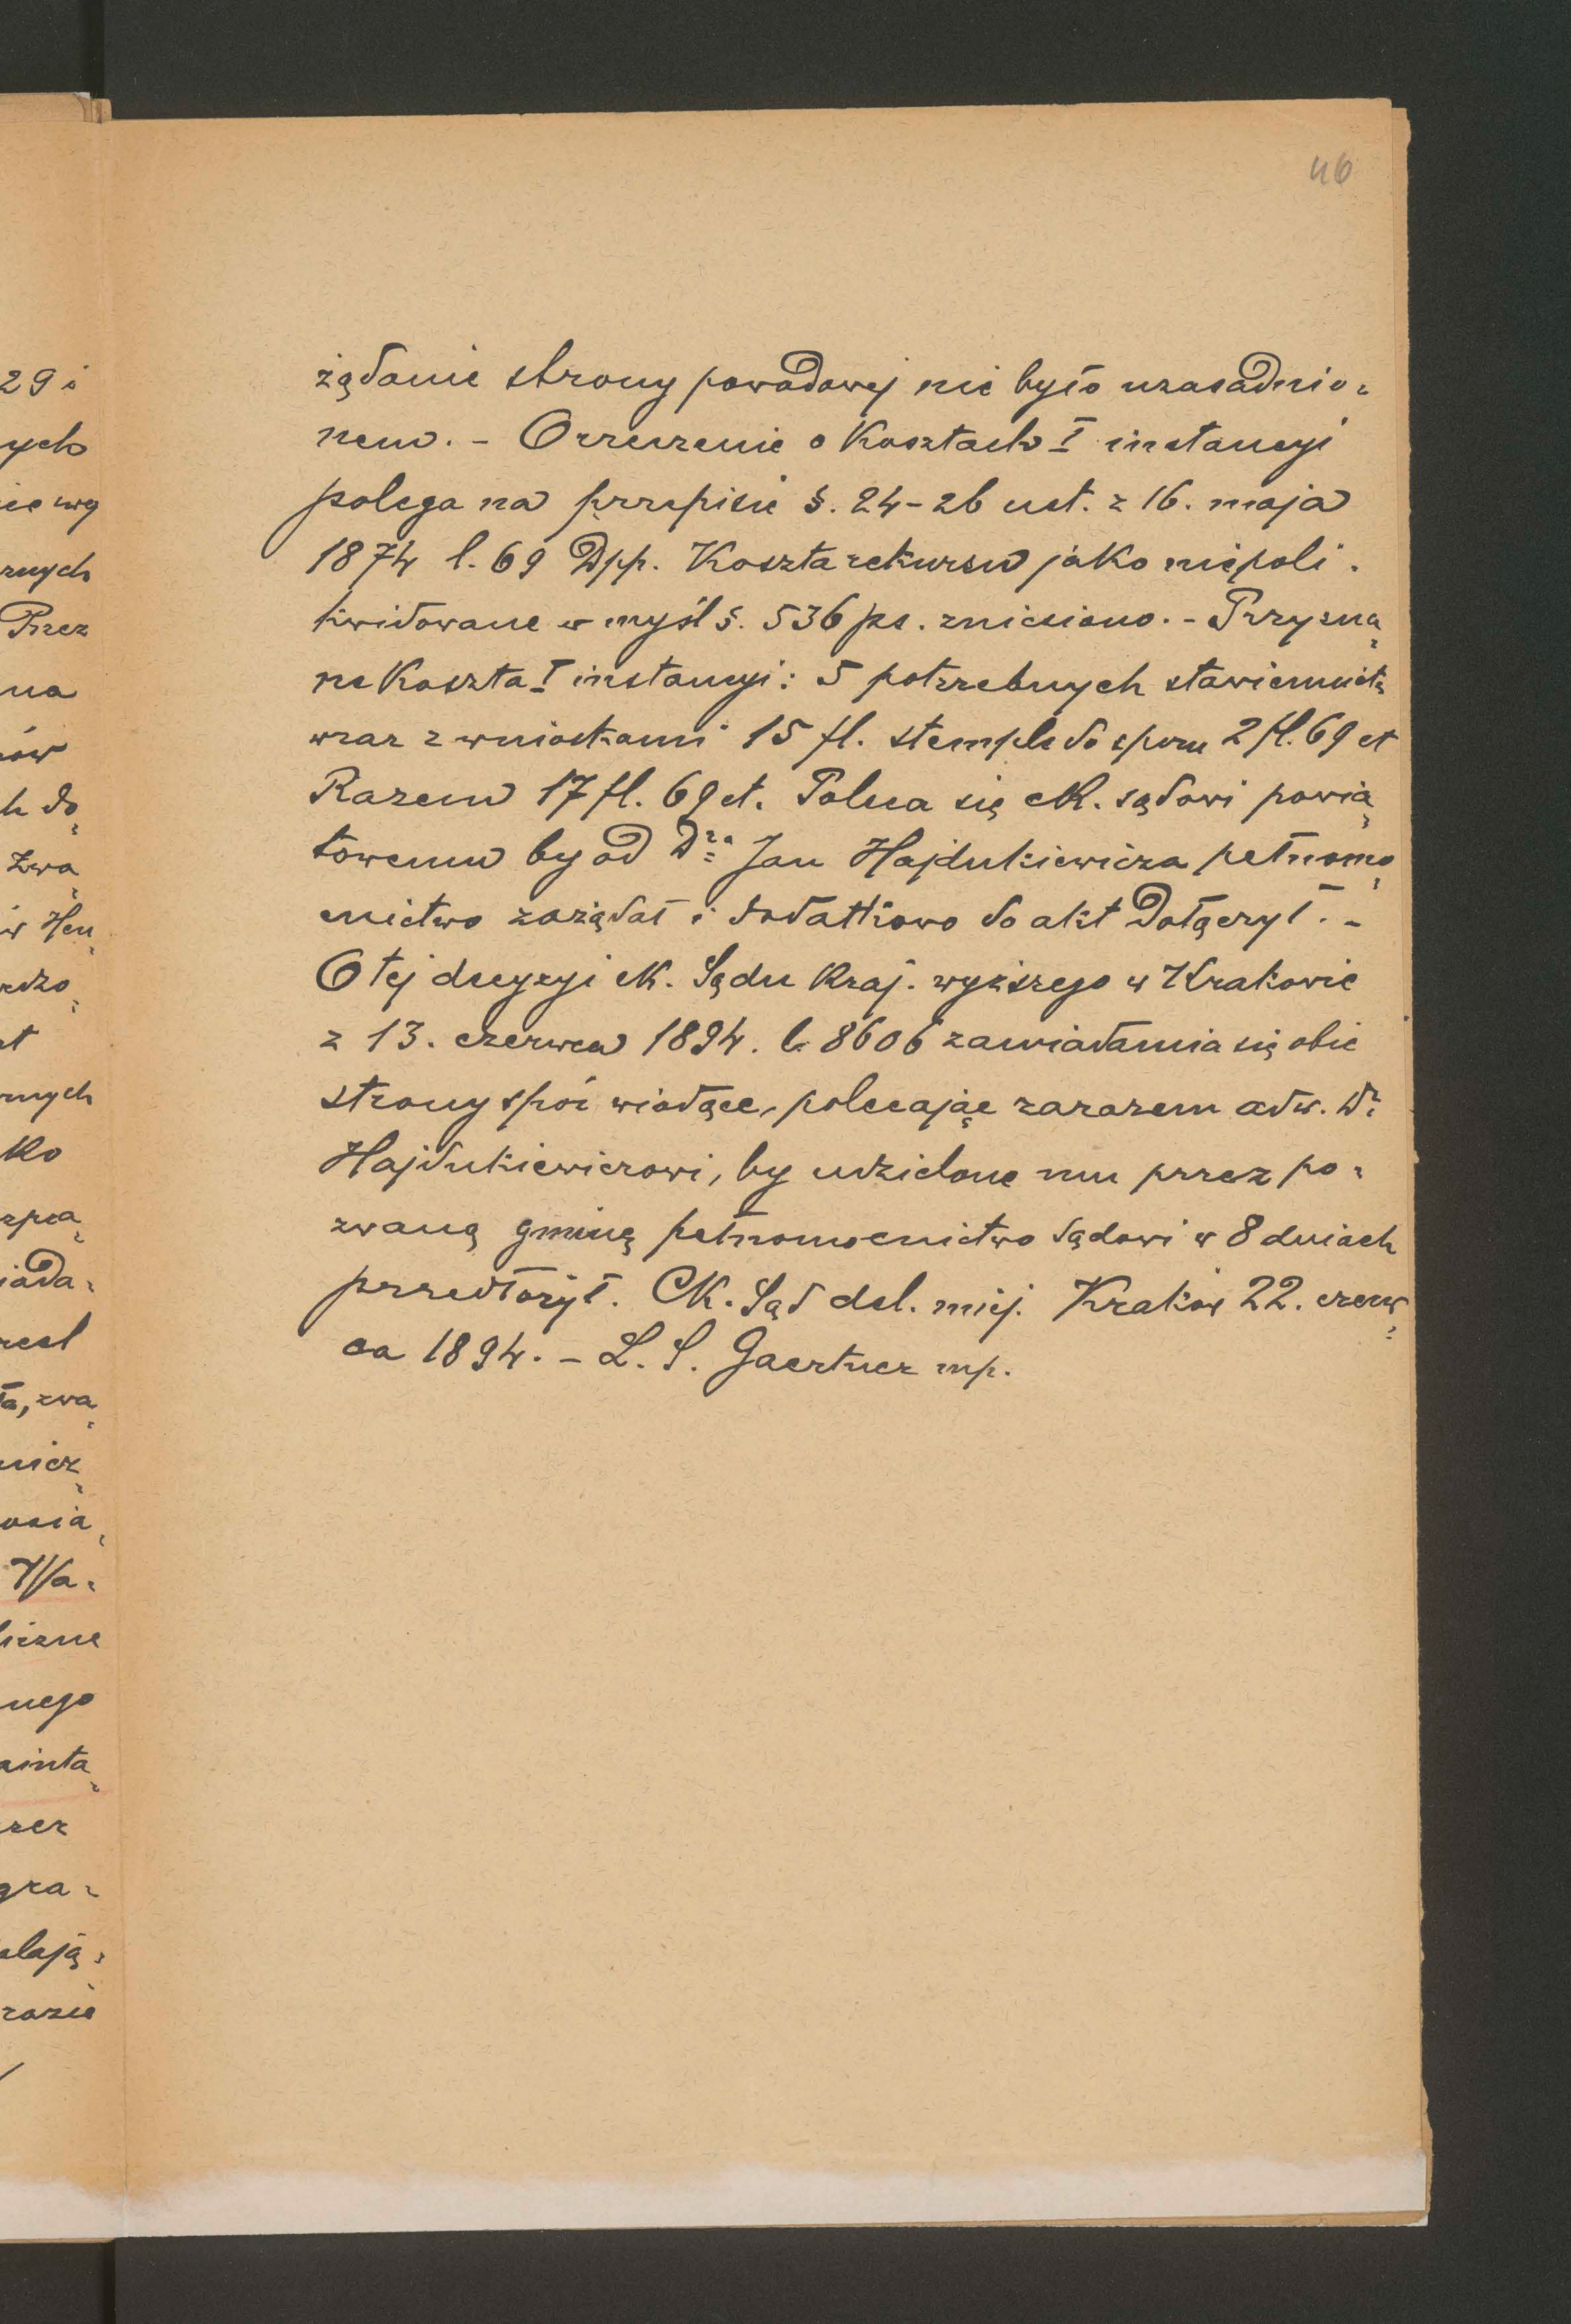 46
żądanie strony powodowej nie było uzasadnio-
nem. - Orzeczenie o kosztach I instancyi
polega na przepisie §. 24-26 ust. z 16. maja
1874 l. 69 Dpp. Koszta rekursu jako niepoli-
kwidowane w myśl §. 536 ps. zniesiono. - Przyzna-
ne koszta I instancyi: 5 potrzebnych stawiennictw
wraz z wnioskami 15 fl. stemple do sporu 2 fl. 69 ct
Razem 17 fl. 69 ct. Poleca się ck. sądowi powia-
towemu by od Dra Jan Hajdukiewicza pełnomo-
cnictwo zażądał i dodatkowo do akt dołączył. -
O tej decyzyi ck. Sądu kraj. wyższego w Krakowie
z 13. czerwca 1894. l. 8606 zawiadamia się obie
strony spór wiodące, polecając zarazem adw. Dr
Hajdukiewiczowi, by udzielone mu przez po-
zwaną gminę pełnomocnictwo sądowi w 8 dniach
przedłożył. CK. Sąd del. miej. Kraków 22. czerw-
ca 1894. - L. S. Gaertner mp.
29 i
ych
rnych
Przez
na
ów
h do
zwa
w Hen
ko
iada-
ła, zwa
nicz
Wa-
liczne
nego
gra-
razie